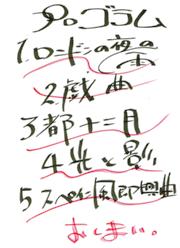 プログラム
1.ロンドンの夜の雨
2戯曲
3都十二月
4光と影
5スペイン風即興曲
おしまい。